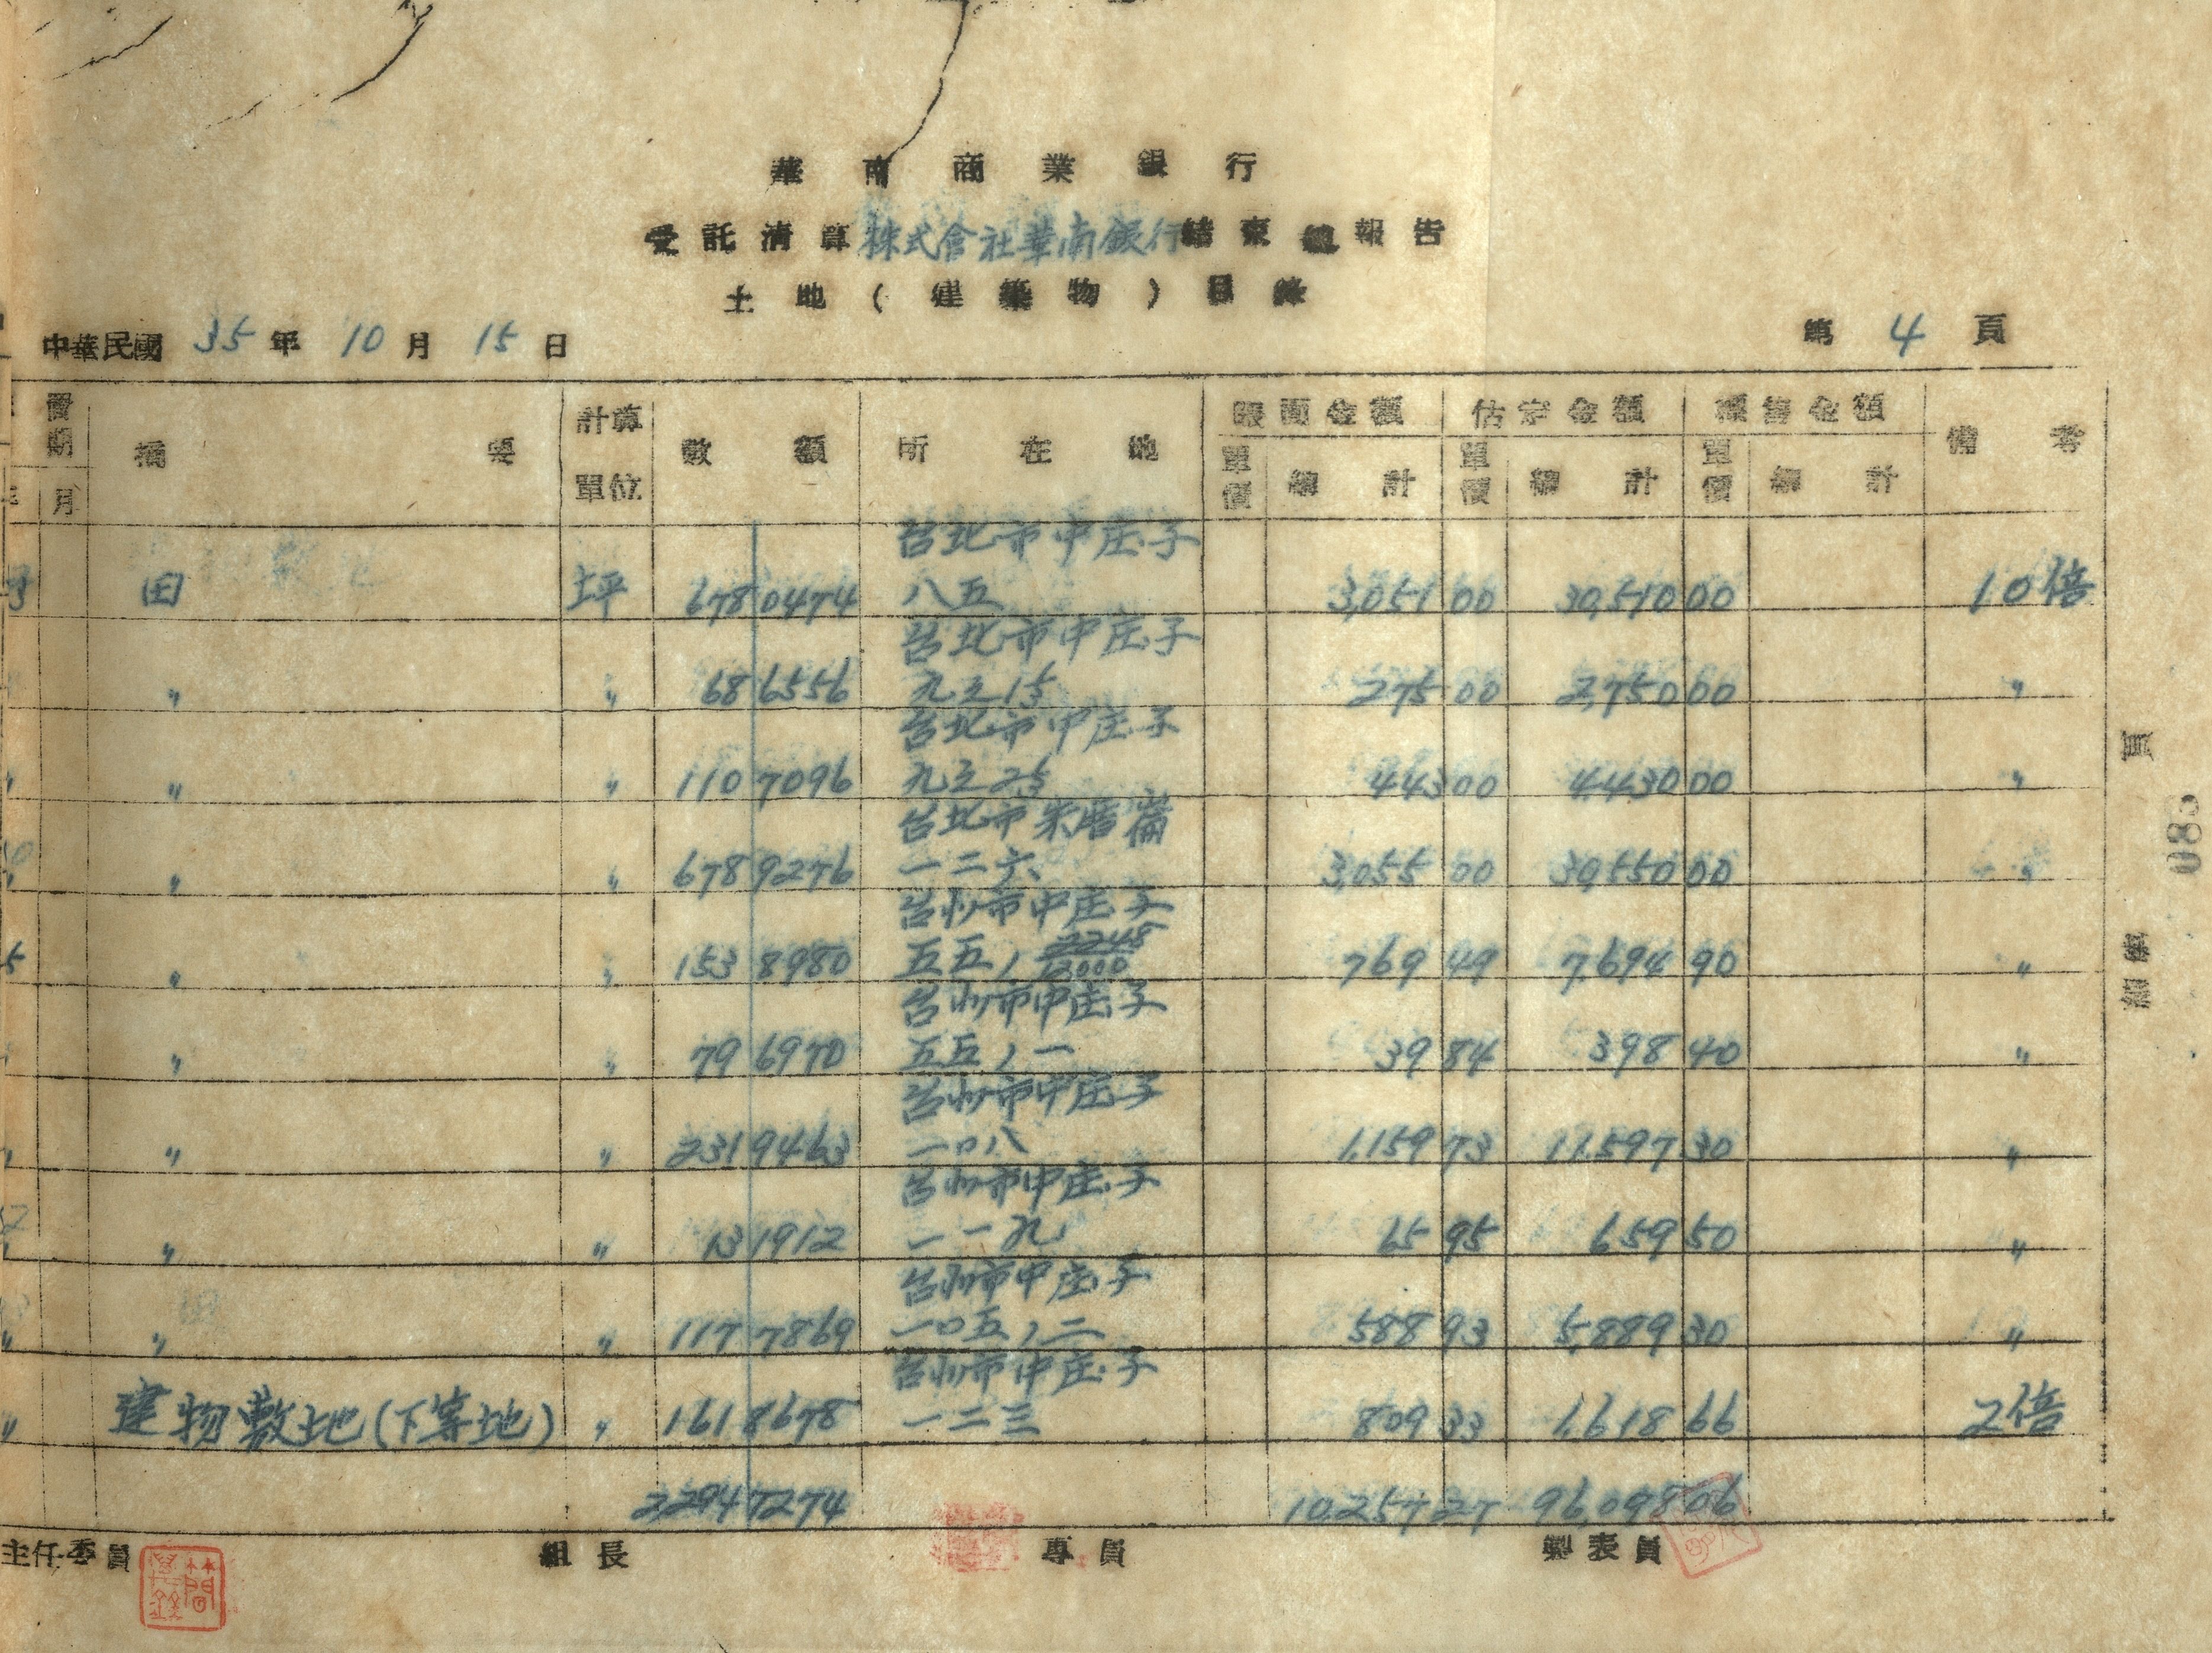 華南商業銀行
受託清算株式會社華南銀行結束總報告
土地(建築物)目錄
中華民國 35 年 10 月 15 日 第 4 頁
期 月 摘要 計算單位 數額 所在地 賬面金額 單價 總計 估定金額 單價 總計 單價 總計 備考
田 坪 678 0474 台北市中庄子 八五 3,051 00 30,510 00 10倍
〃 〃 68 6556 台北市中庄子 九之1 275 00 2,750 00 〃
〃 〃 110 7096 台北市中庄子 九之2 443 00 4,430 00 〃
〃 〃 678 9276 台北市朱厝崙 一二六 3,055 00 30,550 00 〃
〃 〃 153 8980 市中庄子 五五, 2245/13000 769 49 7,694 90 〃
〃 〃 79 6970 市中庄子 五五,一 39 84 398 40 〃
〃 〃 231 9463 市中庄子 一〇八 1,159 73 11,597 30 〃
〃 〃 13 1912 市中庄子 一一九 65 95 659 50 〃
〃 〃 117 7869 市中庄子 一〇五,二 588 93 5,889 30 〃
〃 建物敷地(下等地) 〃 161 8678 市中庄子 一二三 809 33 1,618 66 2倍
2,294 7274 10,257 27 96,098 06
主任委員 組長 專員 製表員
簡
頁
總號